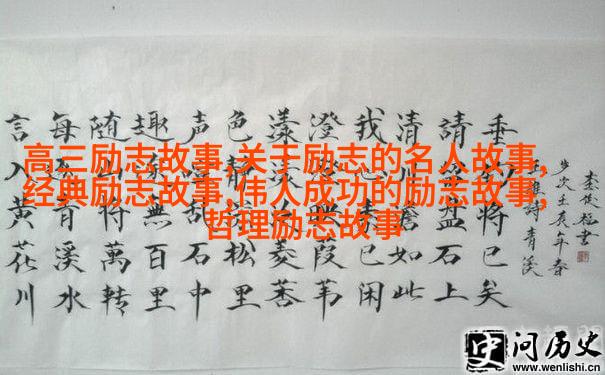 高三励志故事,关于励志的名人故事,
经典励志故事,伟人成功的励志故事,
哲理励志故事
言入黄花川
每青溪水
随山将萬转
趣無百里
声乱石中
色静松里
漾菱荇
澄映葭苇
我已闲
清川澹如此
請盘石上
垂将已矣
王維詩青溪
问历史
www.wenlishi.cn